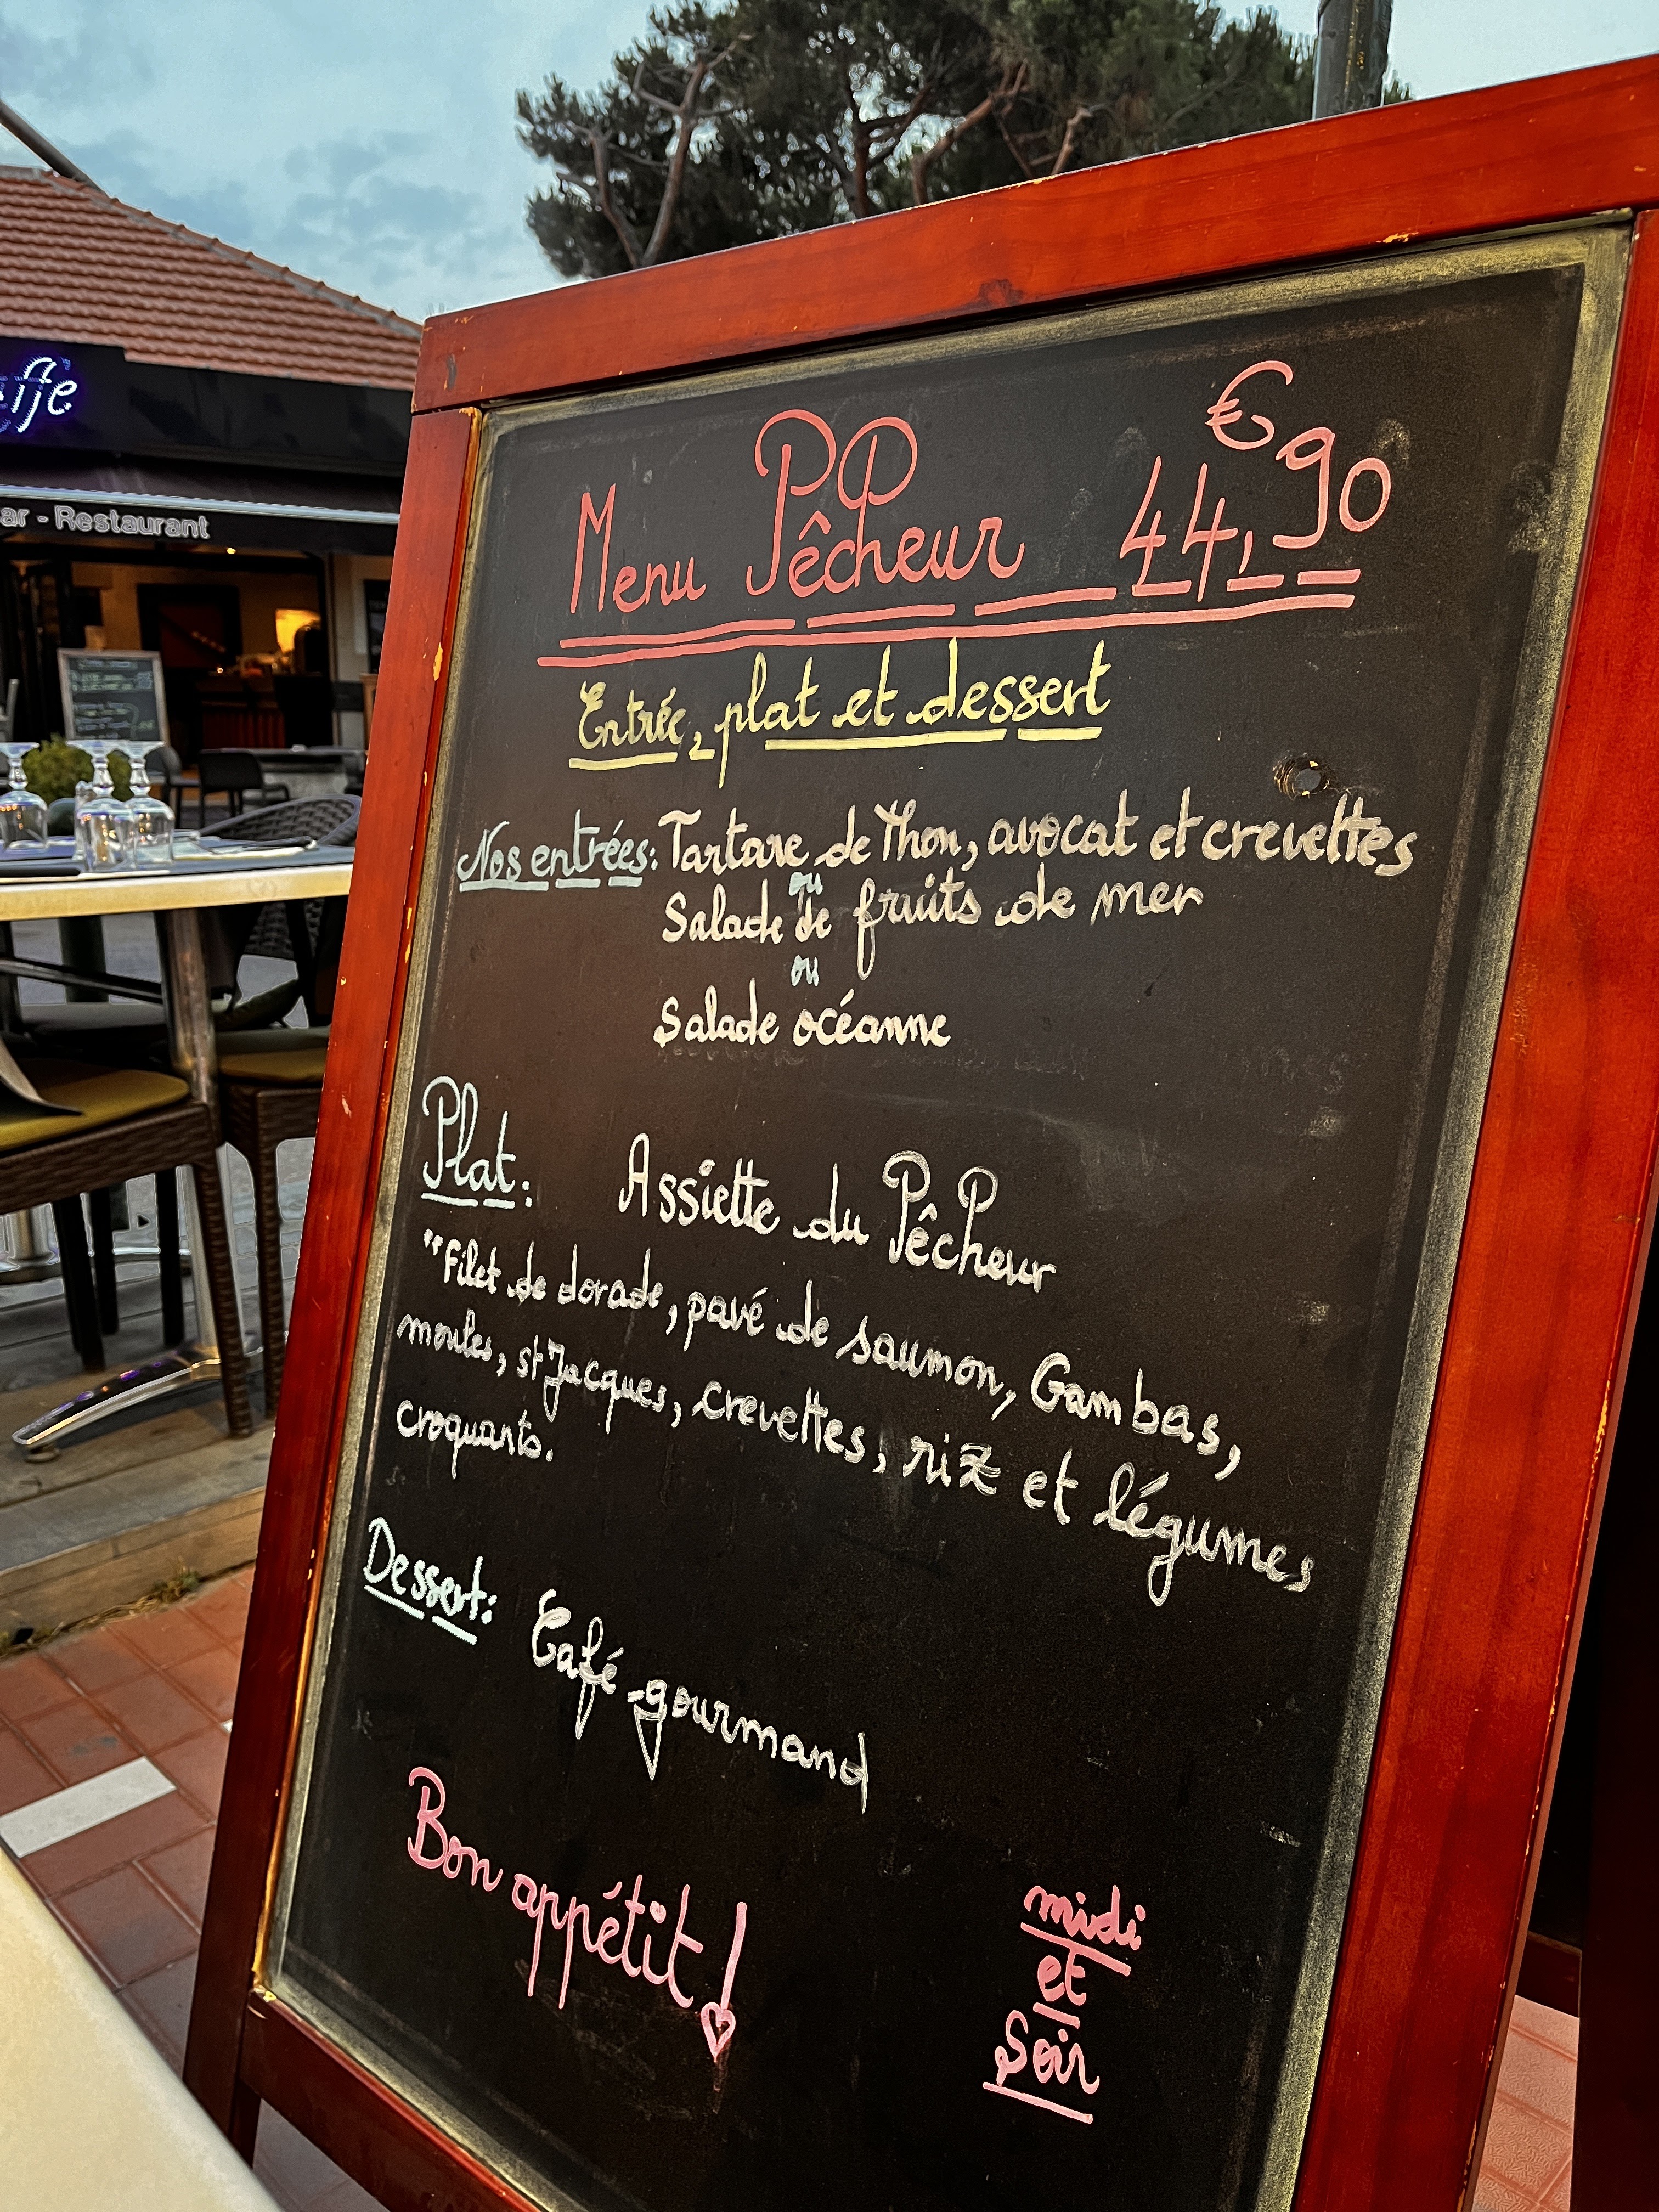 ar - Restaurant
Menu Pêcheur 44,€90
Entrée, plat et dessert
Nos entrées: Tartare de Thon, avocat et crevettes
ou
Salade de fruits de mer
ou
Salade océanne
Plat: Assiette du Pêcheur
"Filet de dorade, pavé de saumon, Gambas,
moules, st Jacques, crevettes, riz et légumes
croquants.
Dessert: Café gourmand
Bon appétit!
midi
et
Soir